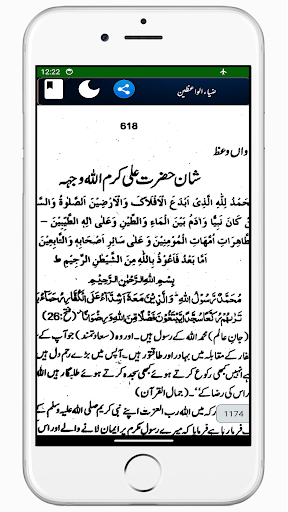 12:22
ضیاء الواعظین
618
واں وعظ
شان حضرت علی کرم اللہ وجہہ
حَمْدُ لِلّٰهِ الَّذِىْ اَبْدَعَ الْاَفْلَاكَ وَالْاَرْضِيْنَ اَلصَّلٰوةُ وَالسَّـ
نْ كَانَ نَبِيًّا وَّاٰدَمُ بَيْنَ الْمَآءِ وَالطِّيْنِ وَعَلٰى اٰلِهِ الطَّيِّبِيْنَ ـ
ـطَّاهِرَاتِ اُمَّهَاتِ الْمُؤْمِنِيْنَ وَ عَلٰى سَآئِرِ اَصْحَابِهٖ وَالتَّابِعِيْنَ
اَمَّا بَعْدُ فَاَعُوْذُ بِاللّٰهِ مِنَ الشَّيْطٰنِ الرَّجِيْمِ ط
بِسْمِ اللّٰهِ الرَّحْمٰنِ الرَّحِيْمِ
مُحَمَّدٌ رَّسُوْلُ اللّٰهِ وَالَّذِيْنَ مَعَهٗٓ اَشِدَّآءُ عَلَى الْكُفَّارِ رُحَمَآءُ بَيْنَهُمْ
تَرٰىهُمْ رُكَّعًا سُجَّدًا يَّبْتَغُوْنَ فَضْلًا مِّنَ اللّٰهِ وَرِضْوَانًا (26:فتح)
(جان عالم) محمد اللہ کے رسول ہیں۔ اور وہ (سعادتمند) جو آپ کے
فار کے مقابلہ میں بہادر اور طاقتور ہیں۔ آپس میں بڑے رحم دل ہیں
ہے انہیں کبھی رکوع کرتے ہوئے کبھی سجدہ کرتے ہوئے طلبگار ہیں اللہ
راس کی رضا کے"۔ (جمال القرآن)
رکہ میں اللہ رب العزت اپنے نبی کریم صلی اللہ علیہ وسلم کے
1174
فرما رہا ہے فرمایا کہ میرے رسول مکرم پر ایمان لانے والے اور اس